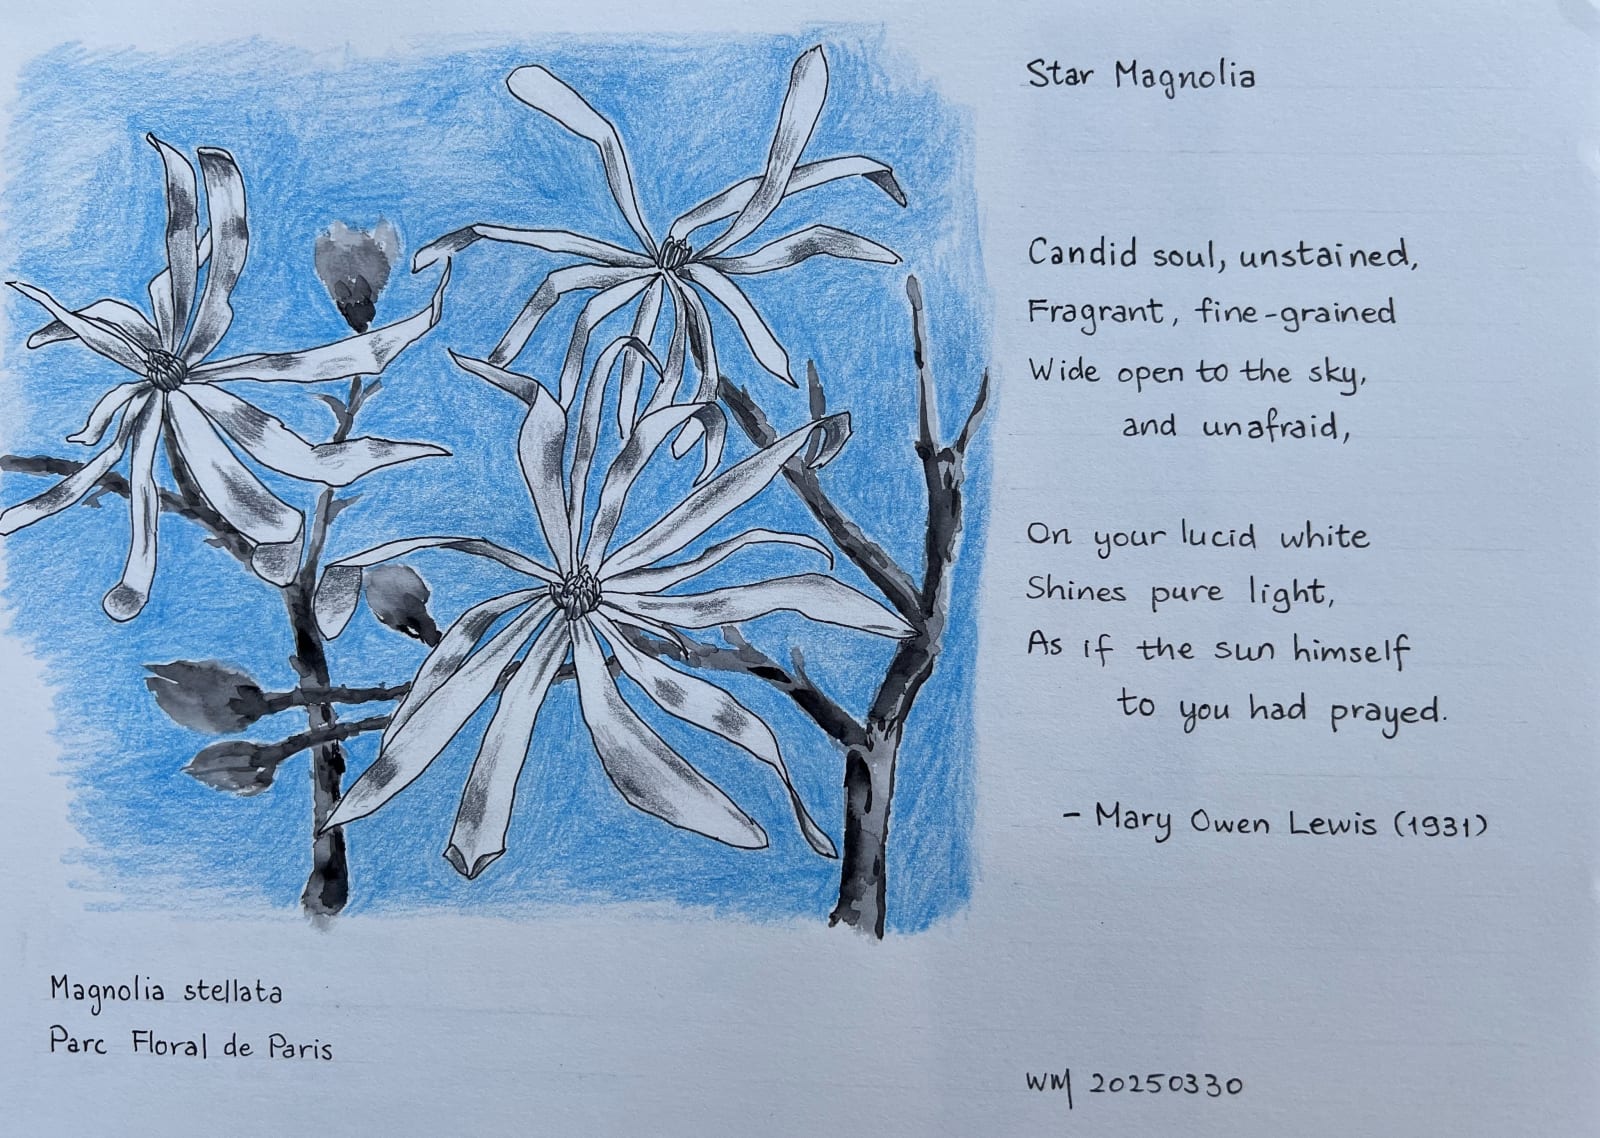 Star Magnolia
Candid soul, unstained,
Fragrant, fine-grained
Wide open to the sky,
and unafraid,
On your lucid white
Shines pure light,
As if the sun himself
to you had prayed.
- Mary Owen Lewis (1931)
Magnolia stellata
Parc Floral de Paris
WM 20250330